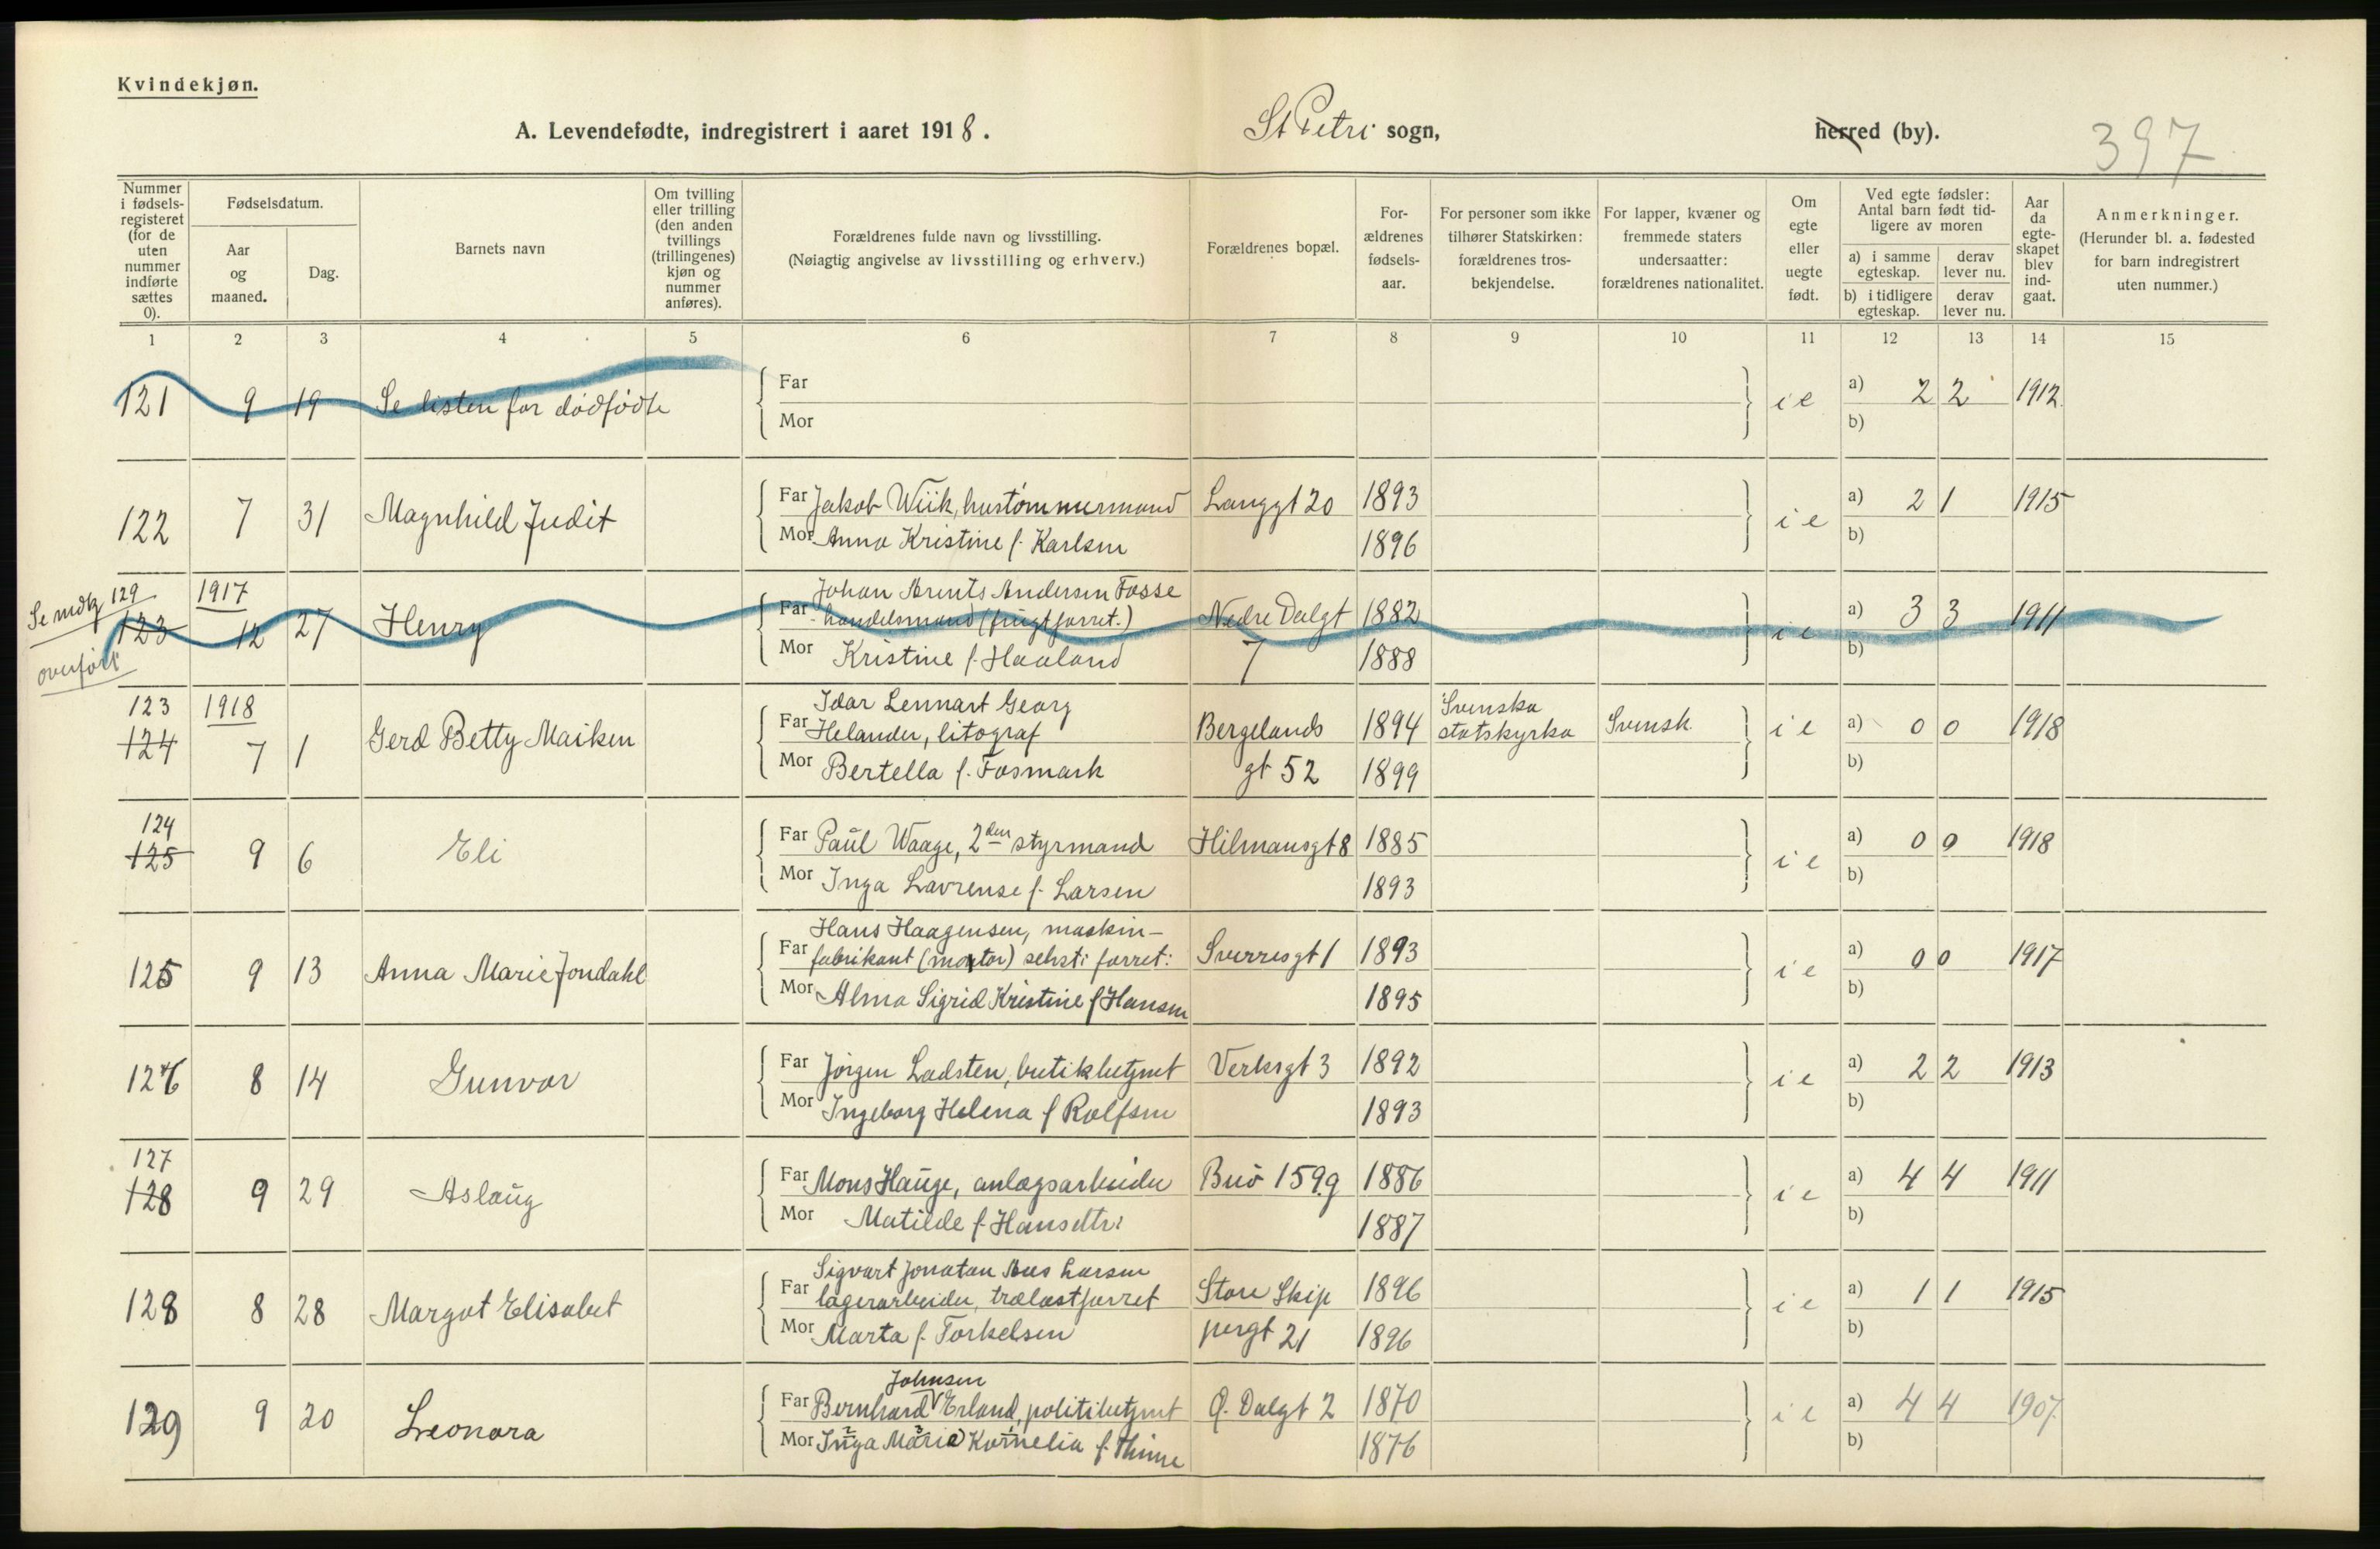 Kvindekjøn.
A. Levendefødte, indregistrert i aaret 1918. St Petri sogn, herred (by). 397
Nummer i fødsels-registeret (for de uten nummer indførte sættes 0).
Fødselsdatum.
Aar og maaned.
Dag.
Barnets navn
Om tvilling eller trilling (den anden tvillings (trillingenes) kjøn og nummer anføres).
Forældrenes fulde navn og livsstilling.
(Nøiagtig angivelse av livsstilling og erhverv.)
Forældrenes bopæl.
For-ældrenes fødsels-aar.
For personer som ikke tilhører Statskirken: forældrenes tros-bekjendelse.
For lapper, kvæner og fremmede staters undersaatter: forældrenes nationalitet.
Om egte eller uegte født.
Ved egte fødsler: Antal barn født tid-ligere av moren
a) i samme egteskap.
derav lever nu.
b) i tidligere egteskap.
derav lever nu.
Aar da egte-skapet blev ind-gaat.
Anmerkninger.
(Herunder bl. a. fødested for barn indregistrert uten nummer.)
1 2 3 4 5 6 7 8 9 10 11 12 13 14 15
121 9 19 Se listen for dødfødte Far i e a) 2 2 1912
Mor b)
122 7 31 Magnhild Judit Far Jakob Wiik, hustømmermand Langgt 20 1893 i e a) 2 1 1915
Mor Anna Kristine f. Karlsen 1896 b)
Se mdkj 129
overført
1917 Johan Arents Andersen Fosse
123 12 27 Henry Far handelsmand (frugtforret.) Nedre Dalgt 1882 i e a) 3 3 1911
Mor Kristine f. Haaland 7 1888 b)
123 1918 Idar Lennart Georg Svenska
124 7 1 Gerd Betty Maiken Far Helander, litograf Bergelands 1894 statskyrka Svensk. i e a) 0 0 1918
Mor Bertella f. Fosmark gt 52 1899 b)
124
125 9 6 Eli Far Paul Waage, 2den styrmand Hilmansgt 8 1885 i e a) 0 0 1918
Mor Inga Lavrense f. Larsen 1893 b)
Hans Haagensen, maskin-
125 9 13 Anna Marie Jondahl Far fabrikant (montør) selvst: forret: Sverresgt 1 1893 i e a) 0 0 1917
Mor Alma Sigrid Kristine f Hansen 1895 b)
126 8 14 Gunvor Far Jørgen Ladsten, butikbetjent Verksgt 3 1892 i e a) 2 2 1913
Mor Ingeborg Helena f Rolfsen 1893 b)
127
128 9 29 Aslaug Far Mons Hauge, anlægsarbeider Buø 159.g 1886 i e a) 4 4 1911
Mor Matilde f. Hansdtr: 1887 b)
Sigvart Jonatan Aas Larsen
128 8 28 Margot Elisabet Far lagerarbeider, trælastforret Store Skip 1896 i e a) 1 1 1915
Mor Marta f. Torkelsen pergt 21 1896 b)
Johnsen
129 9 20 Leonora Far Bernhard Erland, politibetjent Ø. Dalgt 2 1870 i e a) 4 4 1907.
Mor Inga Maria Kornelia f. Thime 1876 b)